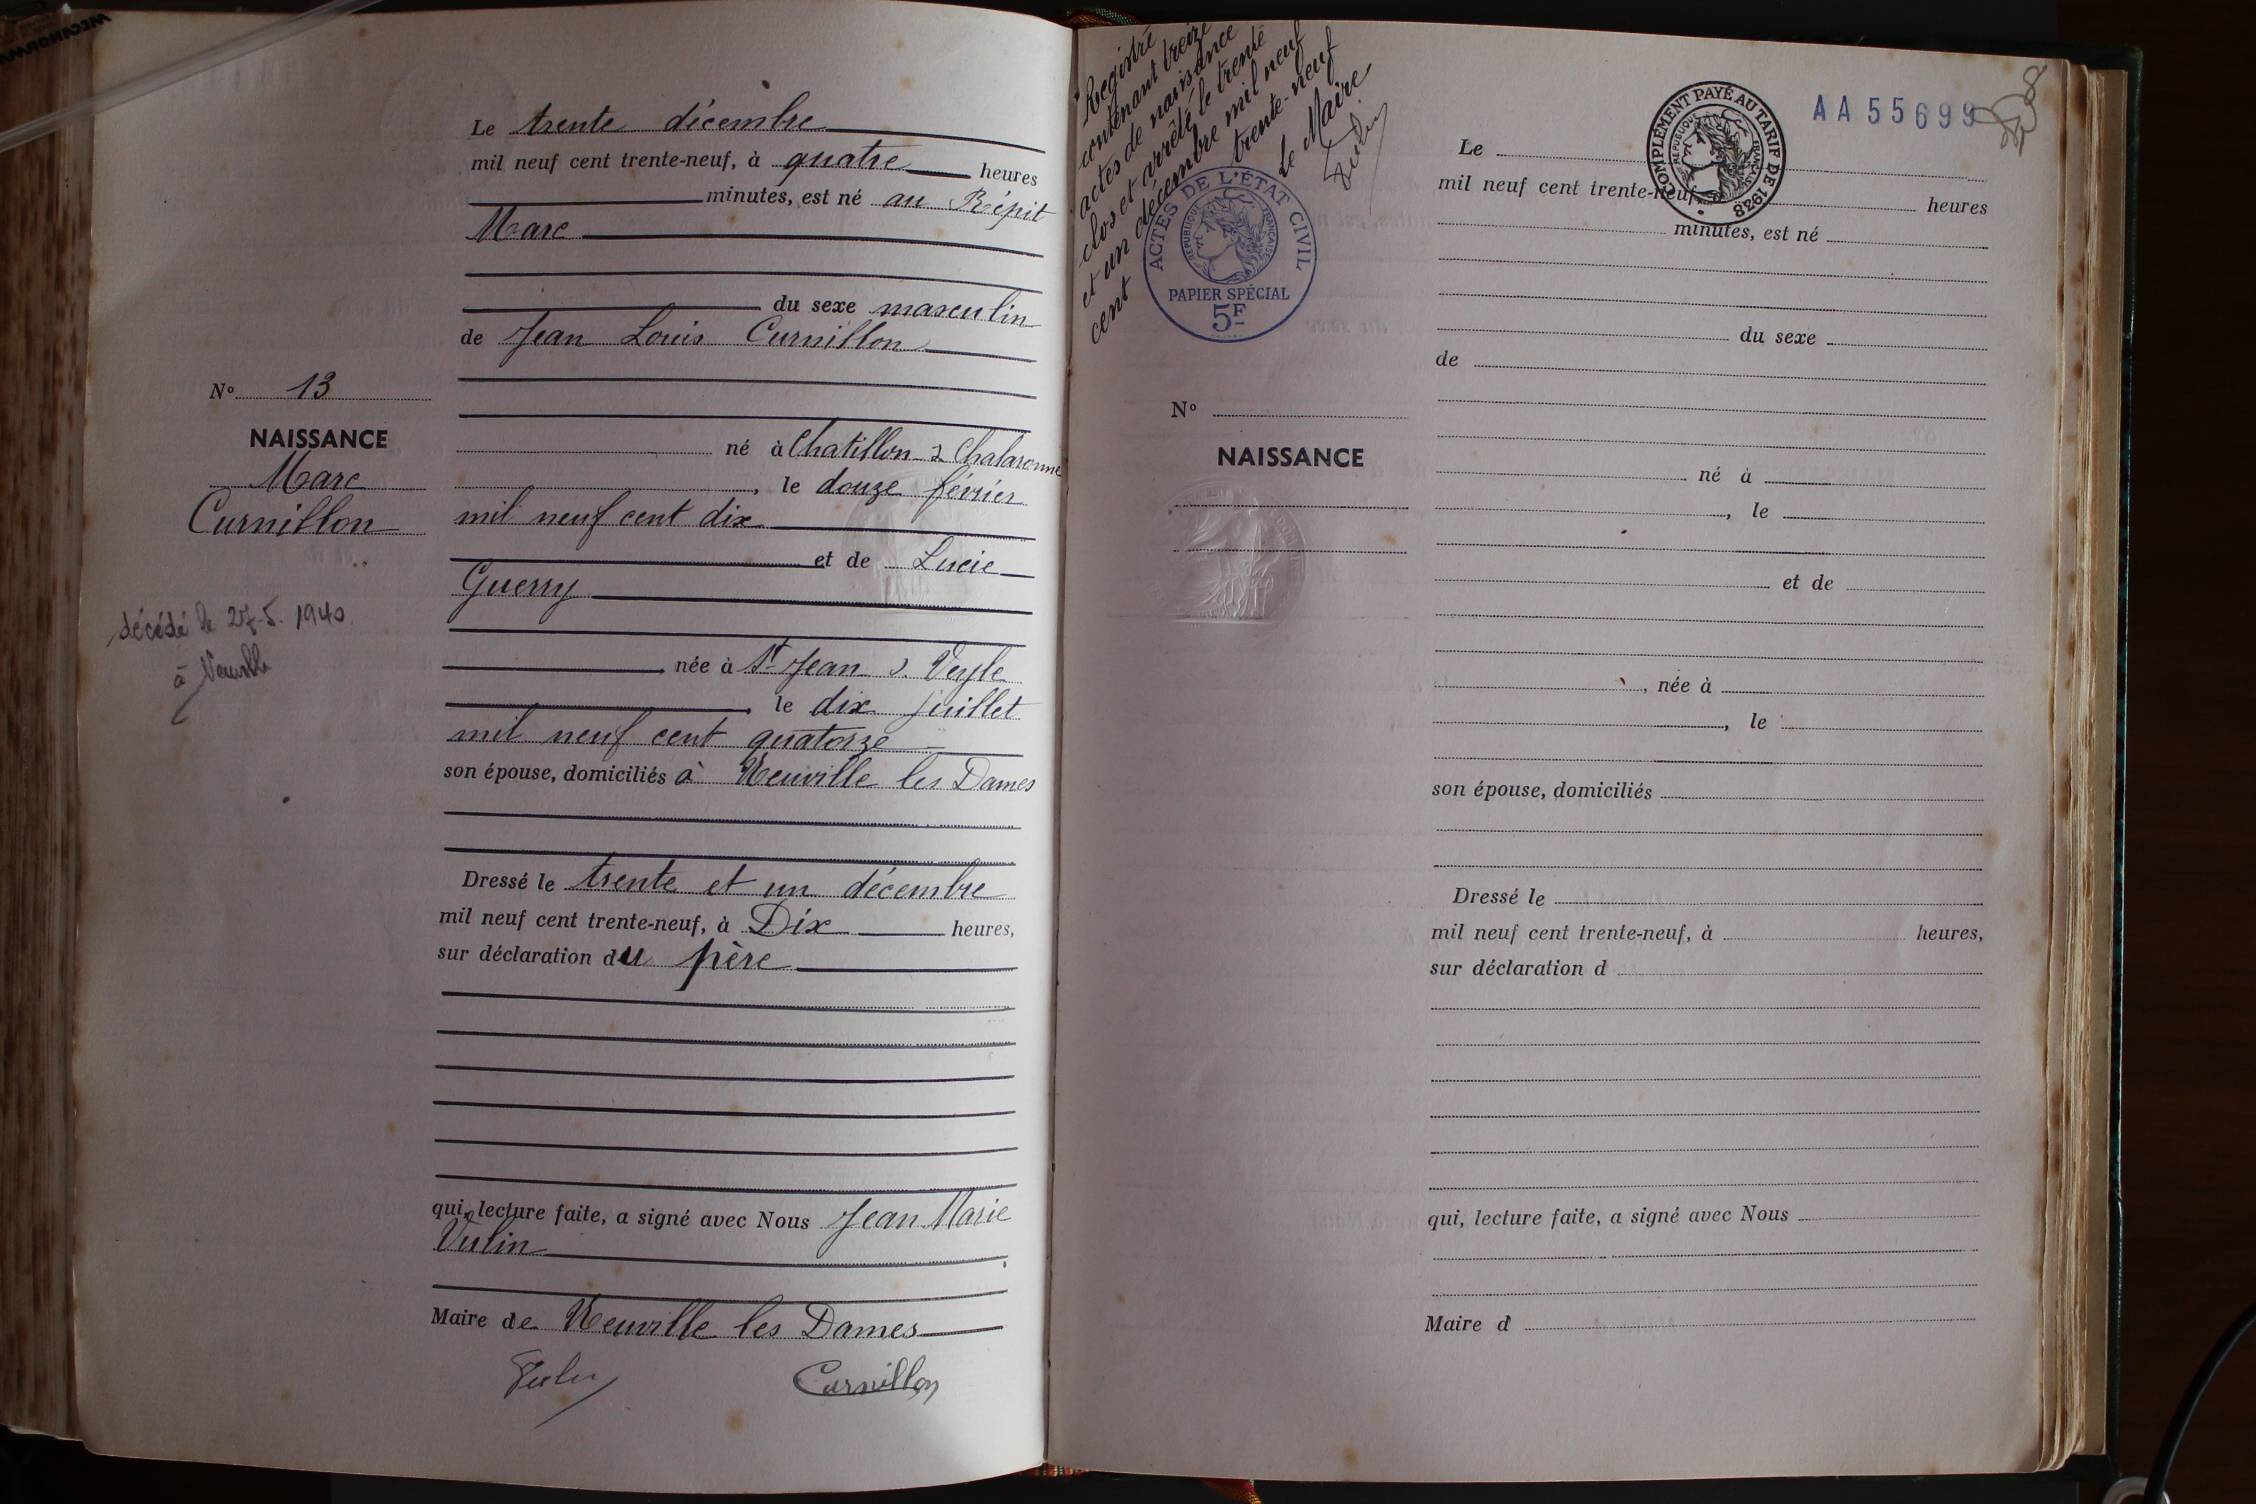 Le trente décembre
mil neuf cent trente-neuf, à quatre heures
minutes, est né au Répit
Marc
du sexe masculin
de Jean Louis Curnillon
N° 13
NAISSANCE
Marc
Curnillon
né à Chatillon s Chalaronne
, le douze février
mil neuf cent dix
et de Lucie
Guerry
décédé le 27-5. 1940
à Neuville
née à St Jean s. Veyle
, le dix juillet
mil neuf cent quatorze
son épouse, domiciliés à Neuville les Dames
Dressé le trente et un décembre
mil neuf cent trente-neuf, à Dix heures,
sur déclaration du père
qui, lecture faite, a signé avec Nous Jean Marie
Vulin
Maire de Neuville les Dames
Vulin Curnillon
Registre
contenant treize
actes de naissance
clos et arrêté le trente
et un décembre mil neuf
cent trente-neuf
Le Maire
Vulin
ACTES DE L'ÉTAT CIVIL
RÉPUBLIQUE FRANÇAISE
PAPIER SPÉCIAL
5F
COMPLÉMENT PAYÉ AU TARIF DE 1928
RÉPUBLIQUE FRANÇAISE
AA 55699
Le
mil neuf cent trente-neuf, à heures
minutes, est né
du sexe
de
N°
NAISSANCE
né à
, le
et de
, née à
, le
son épouse, domiciliés
Dressé le
mil neuf cent trente-neuf, à heures,
sur déclaration d
qui, lecture faite, a signé avec Nous
Maire d